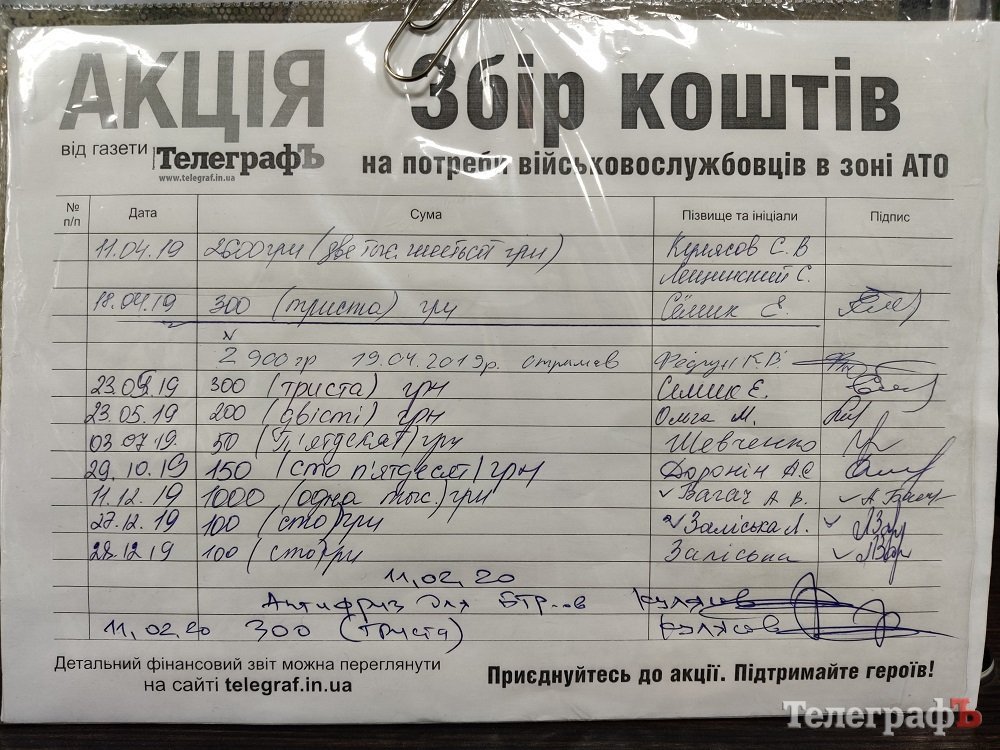 АКЦІЯ
від газети ТелеграфЪ
www.telegraf.in.ua
Збір коштів
на потреби військовослужбовців в зоні АТО
№ п/п Дата Сума Пізвище та ініціали Підпис
11.04.19 2600грн (две тыс. шестьсот грн) Кулясов С.В
Лещинский С.
18.04.19 300 (триста) грн Сёмик Е.
2 900гр 19.04.2019р. отримав
23.05.19 300 (триста) грн Семик Е.
23.05.19 200 (двісті) грн Ольга М.
03.07.19. 50 (П'ятдесят) грн Шевченко
29.10.19 150 (сто п'ятдесят) грн Доронін А.С
11.12.19 1000 (одна тыс.) грн Вагач А В.
27.12.19 100 (сто) грн Заліська Л.
28.12.19 100 (сто) грн Заліська
11,02,20
Антифриз для БТР..ов Кулясов
11,02,20 300 (триста) Кулясов
Детальний фінансовий звіт можна переглянути
на сайті telegraf.in.ua
Приєднуйтесь до акції. Підтримайте героїв!
ТелеграфЪ